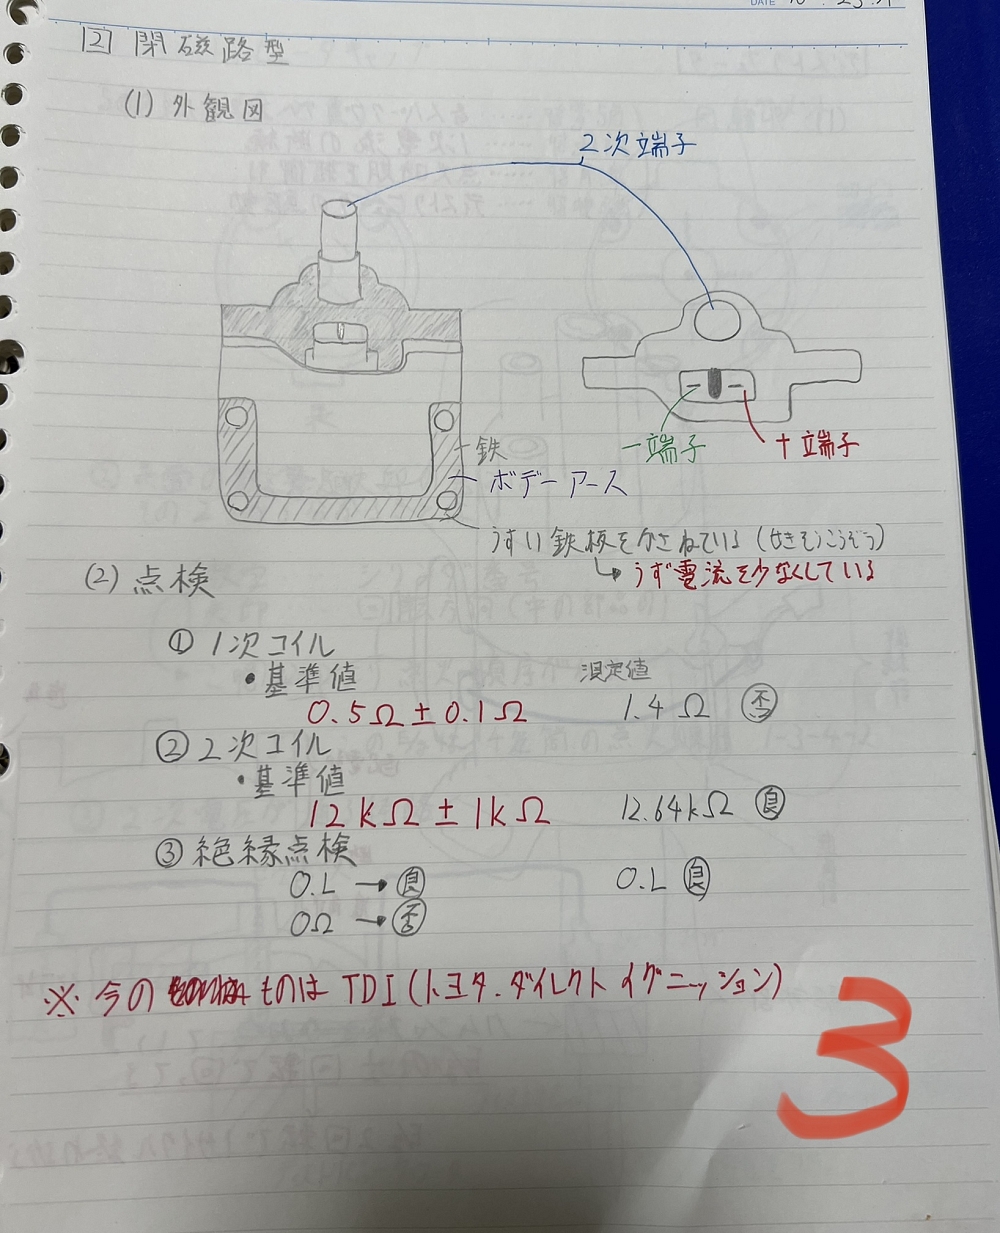 DATE
[2] 閉磁路型
(1) 外観図
2次端子
鉄
ボデーアース
−端子
＋端子
うすい鉄板をかさねている (せきそうこうぞう)
↳ うず電流を少なくしている
(2) 点検
① 1次コイル
・基準値 測定値
0.5Ω±0.1Ω 1.4Ω 否
② 2次コイル
・基準値
12kΩ±1kΩ 12.64kΩ 良
③ 絶縁点検
O.L → 良 O.L 良
0Ω → 否
※ 今の ものは TDI (トヨタ.ダイレクト イグニッション)
3